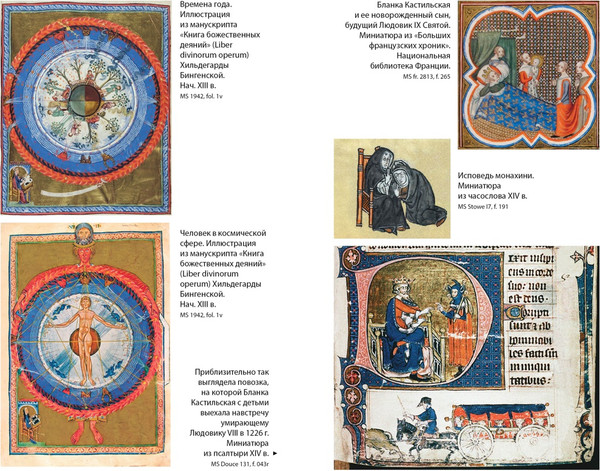 Времена года.
Иллюстрация
из манускрипта
«Книга божественных
деяний» (Liber
divinorum operum)
Хильдегарды
Бингенской.
Нач. XIII в.
MS 1942, fol. 1v
Человек в космической
сфере. Иллюстрация
из манускрипта «Книга
божественных деяний»
(Liber divinorum
operum) Хильдегарды
Бингенской.
Нач. XIII в.
MS 1942, fol. 1v
Приблизительно так
выглядела повозка,
на которой Бланка
Кастильская с детьми
выехала навстречу
умирающему
Людовику VIII в 1226 г.
Миниатюра
из псалтыри XIV в. ►
MS Douce 131, f. 043r
Бланка Кастильская
и ее новорожденный сын,
будущий Людовик IX Святой.
Миниатюра из «Больших
французских хроник».
Национальная
библиотека Франции.
MS fr. 2813, f. 265
Исповедь монахини.
Миниатюра
из часослова XIV в.
MS Stowe I7, f. 191
est deus.